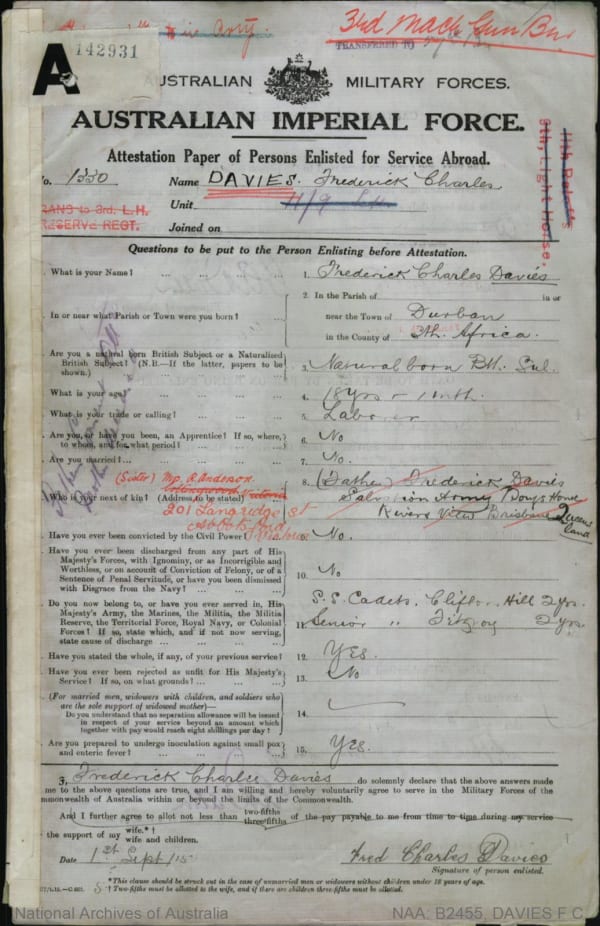 3rd Mach Gun Bn
TRANSFERRED TO
A
142931
AUSTRALIAN MILITARY FORCES.
AUSTRALIAN IMPERIAL FORCE.
Attestation Paper of Persons Enlisted for Service Abroad.
No. 1330 Name DAVIES. Frederick Charles
Unit 11/9 L.H.
TRANS to 3rd. L.H.
RESERVE REGT.
Joined on
11th Reinf's
9th, Light Horse
Questions to be put to the Person Enlisting before Attestation.
. What is your Name? ... 1. Frederick Charles Davies
. In or near what Parish or Town were you born? ... 2. In the Parish of in or
near the Town of Durban
in the County of Sth. Africa.
. Are you a natural born British Subject or a Naturalized British Subject? (N.B.—If the latter, papers to be shown.) 3. Natural born Bt. Sub.
. What is your age? 4. 18 yrs - 1 mth.
. What is your trade or calling? 5. Laborer
. Are you, or have you been, an Apprentice? If so, where, to whom, and for what period? 6. No
. Are you married? 7. No.
. Who is your next of kin? (Address to be stated) 8. (Father) Frederick Davies
Salvation Army Boys Home
River View Brisbane Queensland
(Sister) Mrs. A. Anderson
Collingwood Victoria
201 Langridge St
Abbotsford
Victoria
. Have you ever been convicted by the Civil Power? 9. No.
. Have you ever been discharged from any part of His Majesty's Forces, with Ignominy, or as Incorrigible and Worthless, or on account of Conviction of Felony, or of a Sentence of Penal Servitude, or have you been dismissed with Disgrace from the Navy? 10. No
. Do you now belong to, or have you ever served in, His Majesty's Army, the Marines, the Militia, the Militia Reserve, the Territorial Force, Royal Navy, or Colonial Forces? If so, state which, and if not now serving, state cause of discharge 11. S.S. Cadets. Clifton Hill 2 yrs.
Senior " Fitzroy 2 yrs.
. Have you stated the whole, if any, of your previous service? 12. Yes.
. Have you ever been rejected as unfit for His Majesty's Service? If so, on what grounds? 13. No
. (For married men, widowers with children, and soldiers who are the sole support of widowed mother)—
Do you understand that no separation allowance will be issued in respect of your service beyond an amount which together with pay would reach eight shillings per day? 14.
. Are you prepared to undergo inoculation against small pox and enteric fever? 15. Yes.
I, Frederick Charles Davies do solemnly declare that the above answers made
me to the above questions are true, and I am willing and hereby voluntarily agree to serve in the Military Forces of the
mmonwealth of Australia within or beyond the limits of the Commonwealth.
And I further agree to allot not less than two-fifths three-fifths of the pay payable to me from time to time during my service
the support of my wife.*† wife and children.
Date 1st Sept /15 Fred Charles Davies
Signature of person enlisted.
*This clause should be struck out in the case of unmarried men or widowers without children under 18 years of age.
† Two-fifths must be allotted to the wife, and if there are children three-fifths must be allotted.
National Archives of Australia NAA: B2455, DAVIES F C